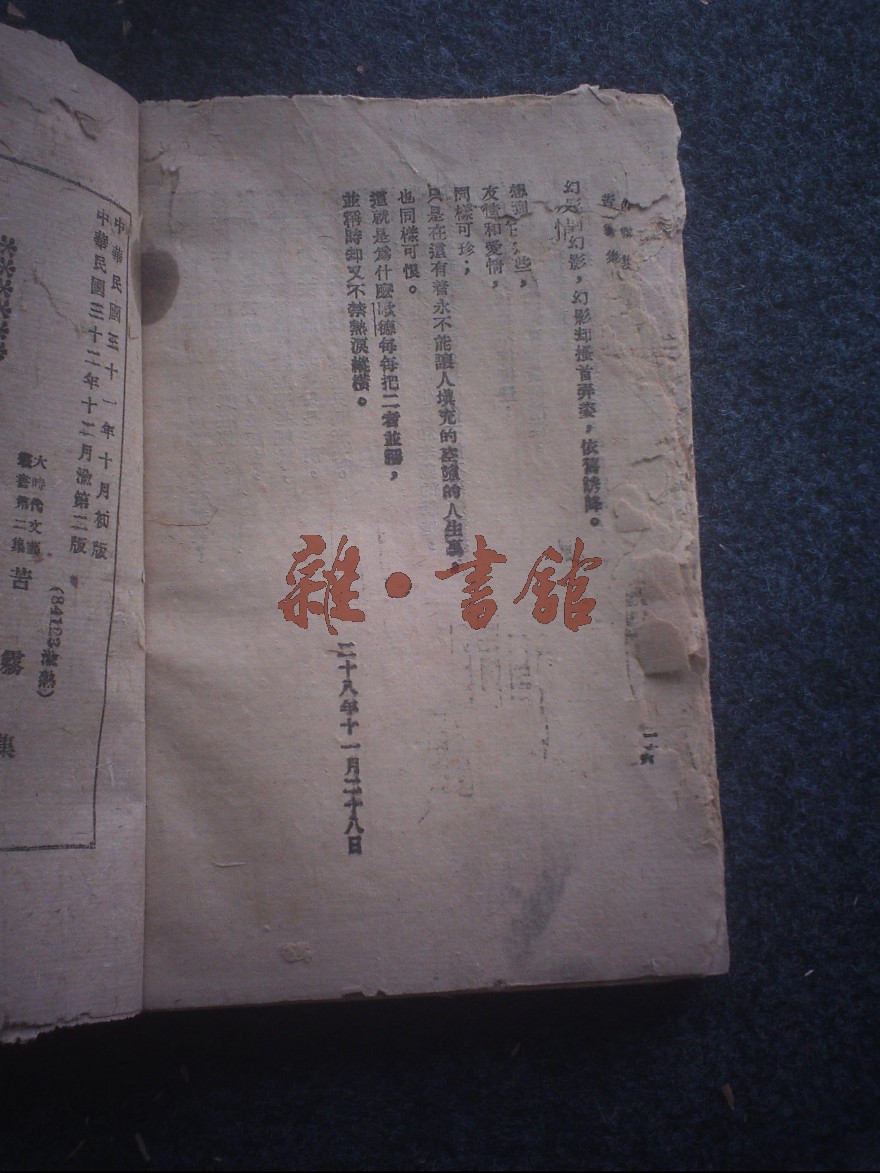 苦霧集
幻影，幻影却搔首弄姿，依舊誘降。
想到些，
友情和愛情，
同樣可珍；
只是在這有着永不能讓人填充的空隙的人生裏。
也同樣可恨。
這就是爲什麼歌德每每把二者並稱，
並稱時却又不禁熱淚縱橫。
二十八年十一月二十八日
一六
中華民國三十一年十月初版
中華民國三十二年十二月渝第二版
渝熟)
大時代文藝
叢書第二集
苦霧集
雜•書館